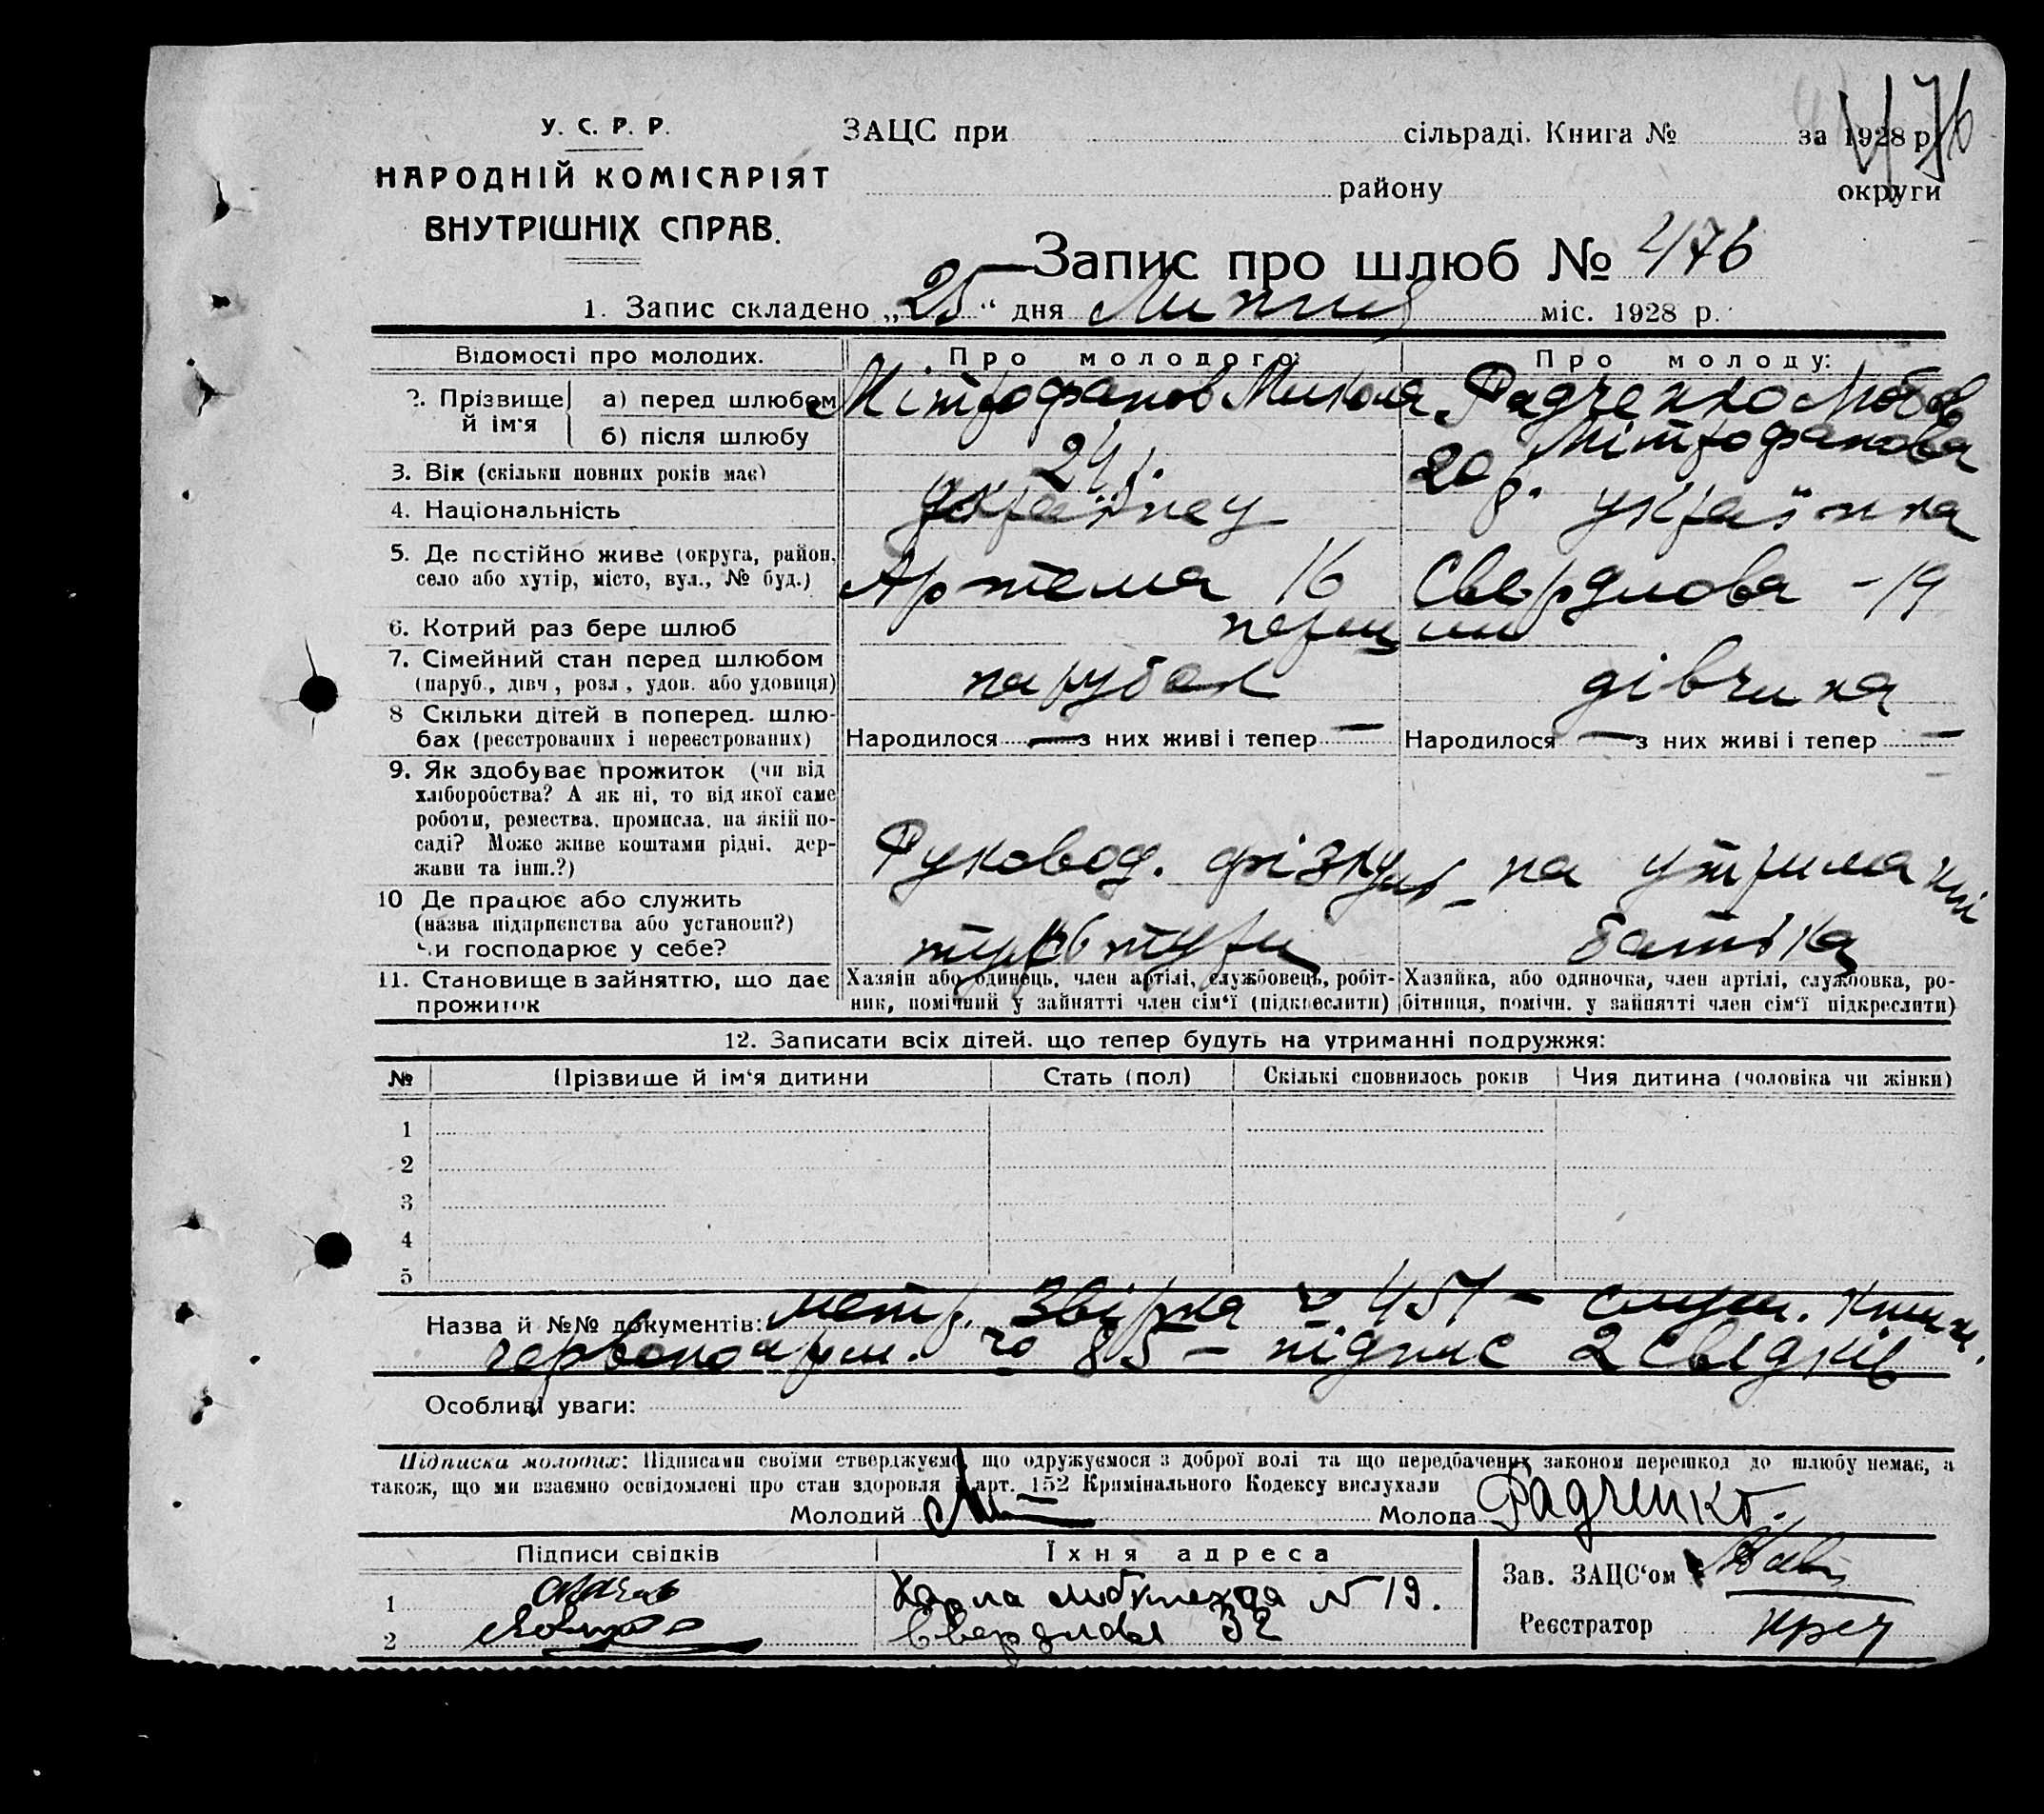 476
У. С. Р. Р.
НАРОДНІЙ КОМІСАРІЯТ
ВНУТРІШНІХ СПРАВ.
ЗАЦС при сільраді. Книга № за 1928 р.
району округи
Запис про шлюб № 476
1. Запис складено „25“ дня Липня міс. 1928 р.
Відомості про молодих. Про молодого: Про молоду:
2. Прізвище й ім'я
а) перед шлюбом Мітрофанов Микола Радченко Любов
б) після шлюбу Мітрофанова
3. Вік (скільки повних років має) 24 р. 20 р.
4. Національність українец українка
5. Де постійно живе (округа, район,
село або хутір, місто, вул., № буд.) Артема 16 Свердлова - 19
6. Котрий раз бере шлюб перший
7. Сімейний стан перед шлюбом
(паруб., дівч., розл., удов. або удовиця) парубок дівчина
8 Скільки дітей в поперед. шлю-
бах (реєстрованих і нереєстрованих) Народилося — з них живі і тепер — Народилося — з них живі і тепер —
9. Як здобуває прожиток (чи від
хліборобства? А як ні, то від якої саме
роботи, ремества, промисла, на якій по-
саді? Може живе коштами рідні, дер-
жави та інш.?) Руковод. фізкуль- на утриманні
10 Де працює або служить
(назва підприємства або установи?)
чи господарює у себе? тури батька
11. Становище в зайняттю, що дає
прожиток
Хазяїн або одинець, член артілі, службовець, робіт-
ник, помічний у зайнятті член сім'ї (підкреслити)
Хазяйка, або одиночка, член артілі, службовка, ро-
бітниця, помічн. у зайнятті член сім'ї підкреслити)
12. Записати всіх дітей, що тепер будуть на утриманні подружжя:
№ Прізвище й ім'я дитини Стать (пол) Скількі сповнилось років Чия дитина (чоловіка чи жінки)
1
2
3
4
5
Назва й №№ документів: метр. звірка 457 - служ. книж.
червоноарм. 85 - підпис 2 свідків
Особливі уваги:
Підписка молодих: Підписами своїми стверджуємо, що одружуємося з доброї волі та що передбачених законом перешкод до шлюбу немає, а
також, що ми взаємно освідомлені про стан здоровля і арт. 152 Кримінального Кодексу вислухали
Молодий Молода Радченко.
Підписи свідків Їхня адреса
1 Карла Любкнехта № 19.
2 Свердлова 32
Зав. ЗАЦС'ом
Реєстратор